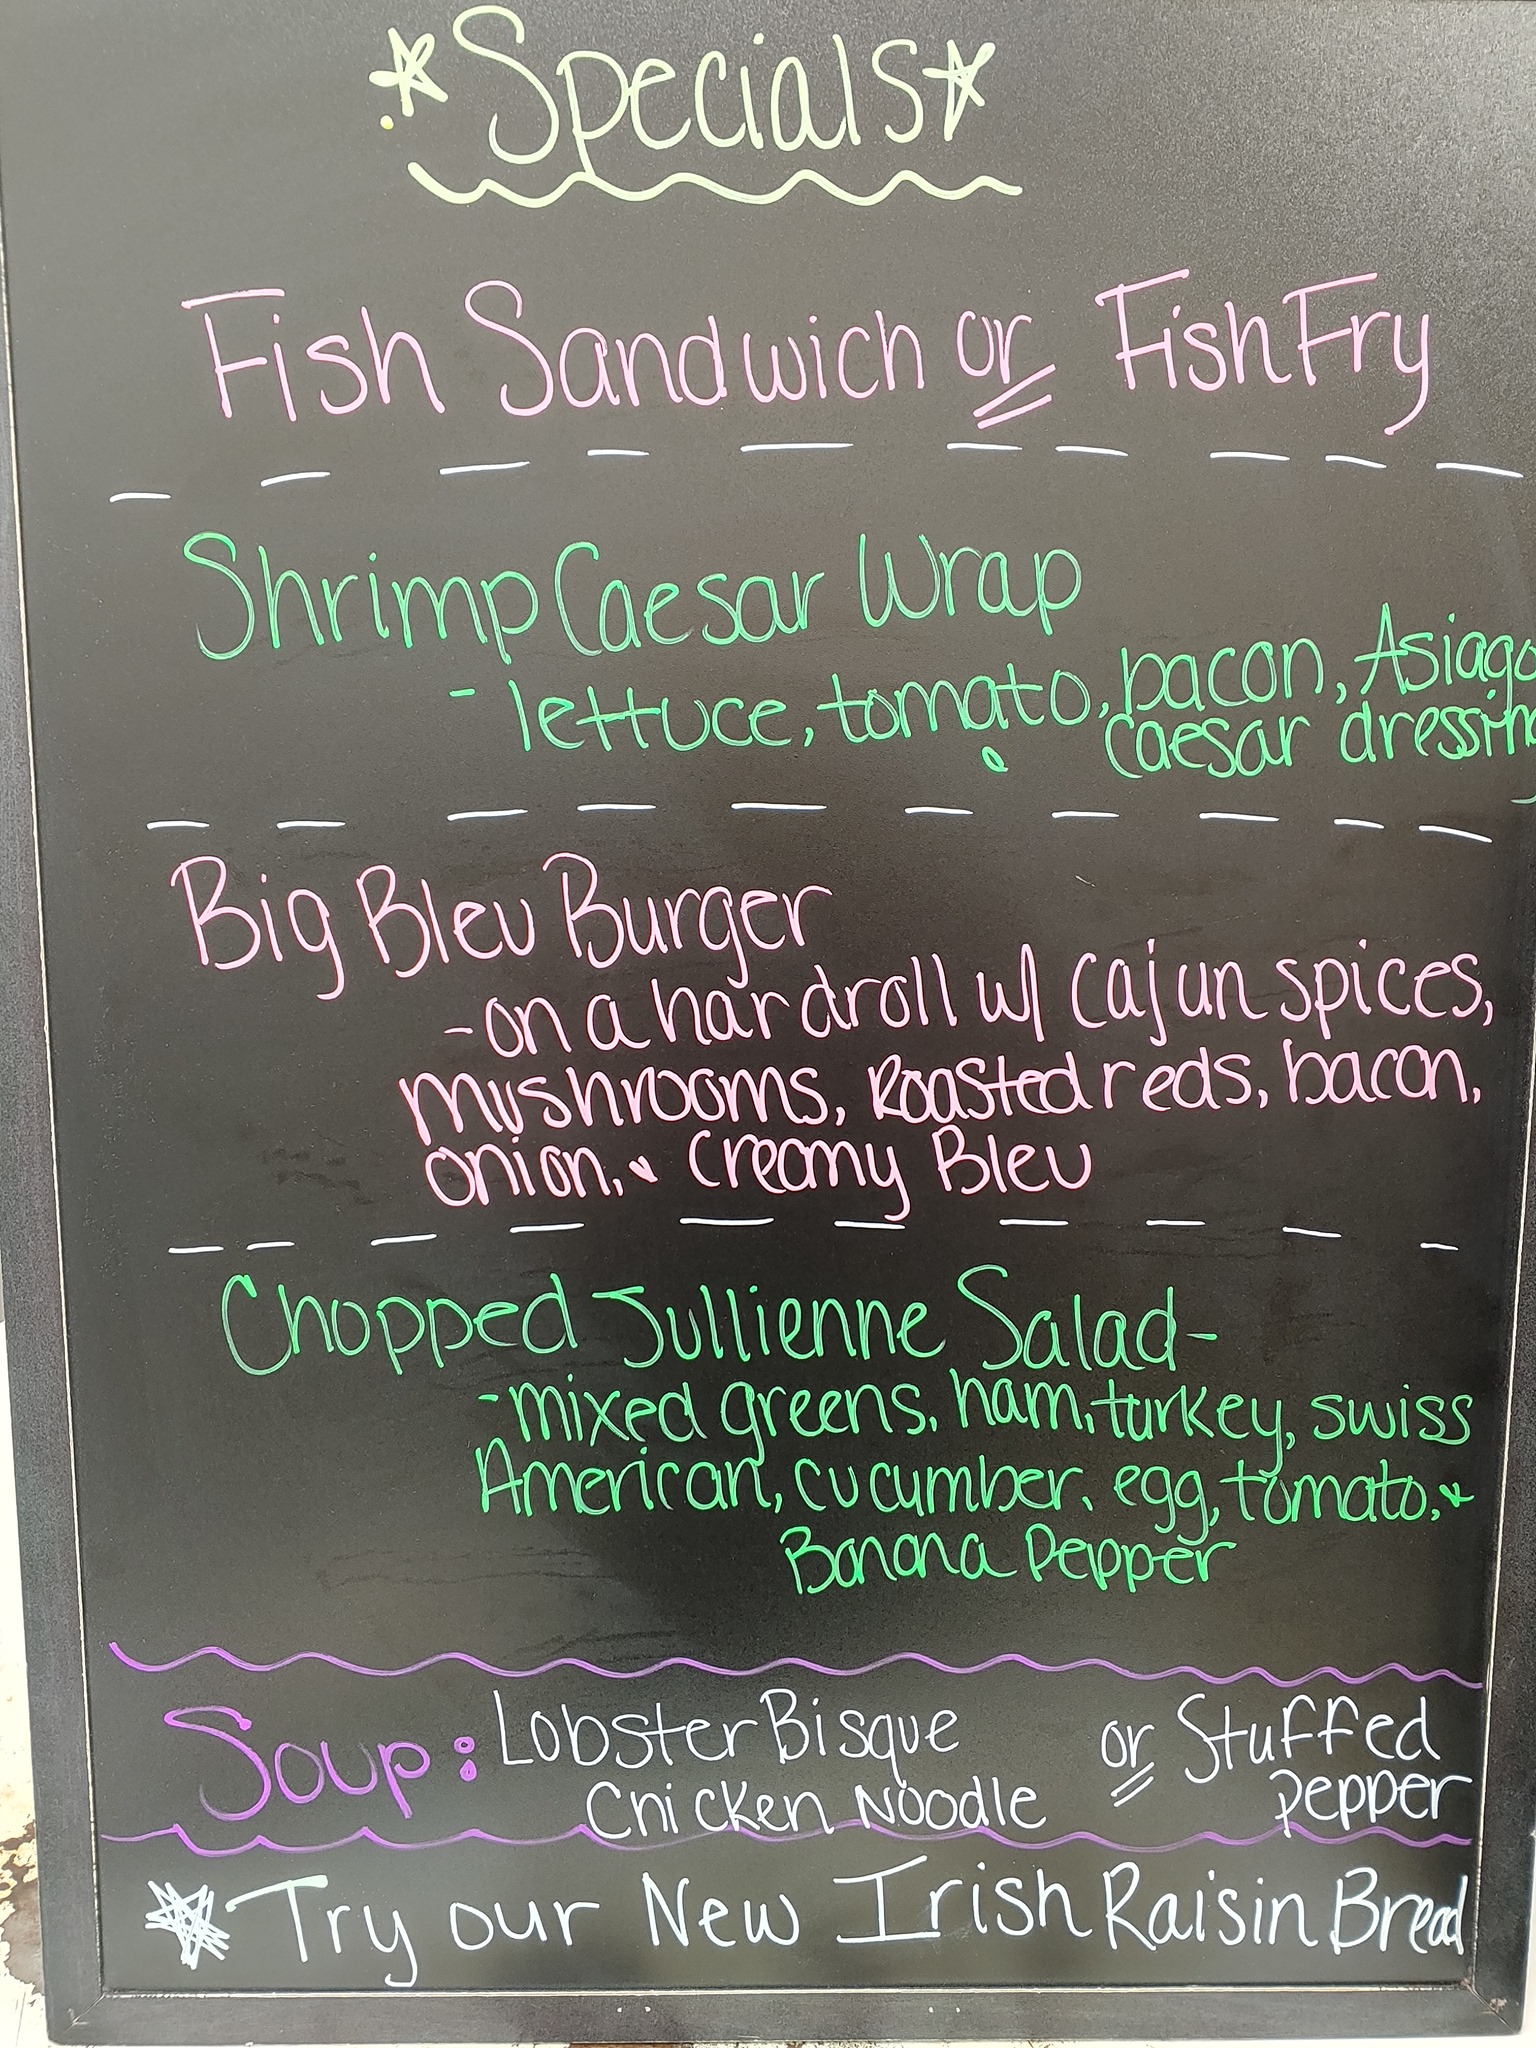 Specials
Fish Sandwich or Fish Fry
Shrimp Caesar Wrap
- lettuce, tomato, bacon, Asiago
& Caesar dressing
Big Bleu Burger
- on a hard roll w/ Cajun spices,
mushrooms, Roasted reds, bacon,
onion, & Creamy Bleu
Chopped Jullienne Salad-
- mixed greens, ham, turkey, swiss
American, cucumber, egg, tomato, &
Banana Pepper
Soup: Lobster Bisque or Stuffed
Chicken Noodle pepper
Try our New Irish Raisin Bread